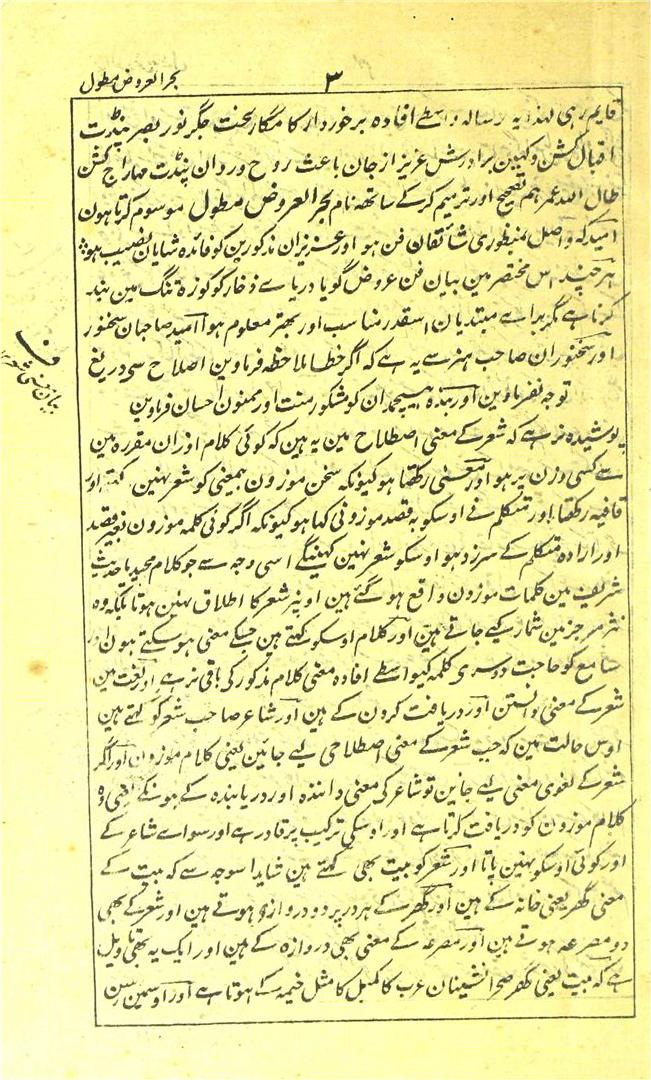 بحر العروض مطول
۳
قایم رہی لہذا یہ رسالہ واسطے افادہ برخوردار کامگار لخت جگر نور بصر پنڈت
اقبال کشن و کہین برادرش عزیز از جان باعث روح و روان پنڈت مہاراج کشن
طال اللہ عمرہم تصحیح اور ترمیم کرکے ساتھہ نام بحر العروض مطول موسوم کرتا ہون
امید کہ و اصل بمنظوری شائقان فن ہو اور عزیزان مذکورین کو فائدہ شایان نصیب ہو
ہر چند اس مختصر مین بیان فن عروض گویا دریاے ذخار کو کوزہ تنگ مین بند
کرنا ہے مگر براے مبتدیان اسقدر مناسب اور بہتر معلوم ہوا امید صاحبان سخنور
اور سخنوران صاحب ہنر سے یہ ہے کہ اگر خطا ملاحظہ فرماوین اصلاح سی دریغ
توجہ نفرماوین اور بندہ ہیچمدان کو مشکور منت اور ممنون احسان فرماوین
پوشیدہ نرہے کہ شعر کے معنی اصطلاح مین یہ ہین کہ کوئی کلام اوزان مقررہ مین
سے کسی وزن پر ہو اور معنی رکھتا ہو کیونکہ سخن موزون بیمعنی کو شعر نہین کہتے اور
قافیہ رکھتا اور متکلم نے اوسکو بہ قصد موزونی کہا ہو کیونکہ اگر کوئی کلمہ موزون بغیر قصد
اور ارادہ متکلم کے سرزد ہو اوسکو شعر نہین کہینگے اسی وجہ سے جو کلام مجید یا حدیث
شریف مین کلمات موزون واقع ہو گئے ہین اونپر شعر کا اطلاق نہین ہوتا بلکہ وہ
نثر مرجز مین شمار کیے جاتے ہین اور کلام اوسکو کہتے ہین جسکے معنی ہو سکتے ہون اور
سامع کو حاجت دوسری کلمہ کیواسطے افادہ معنی کلام مذکور کی باقی نرہے اور لغت مین
شعر کے معنی دانستن اور دریافت کردن کے ہین اور شاعر صاحب شعر کو کہتے ہین
اوس حالت مین کہ جب شعر کے معنی اصطلاحی لیے جائین یعنی کلام موزون اور اگر
شعر کے لغوی معنی لیے جائین تو شاعر کی معنی دانندہ اور دریابندہ کے ہونگے یعنی وہ
کلام موزون کو دریافت کرتا ہے اور اوسکی ترکیب پر قادر ہے اور سواے شاعر کے
اور کوئی اوسکو نہین پاتا اور شعر کو بیت بھی کہتے ہین شاید اسوجہ سے کہ بیت کے
معنی گھر یعنی خانہ کے ہین اور گھر کے ہر در پر دو دروازہ ہوتے ہین اور شعر کے بھی
دو مصرعہ ہوتے ہین اور مصرعہ کے معنی بھی دروازہ کے ہین اور ایک یہ بھی تاویل
ہے کہ بیت یعنی گھر صحرا نشینان عرب کا کمبل کا مثل خیمہ کے ہوتا ہے اور اوسمین رسن
ف
بیان معنی شعر